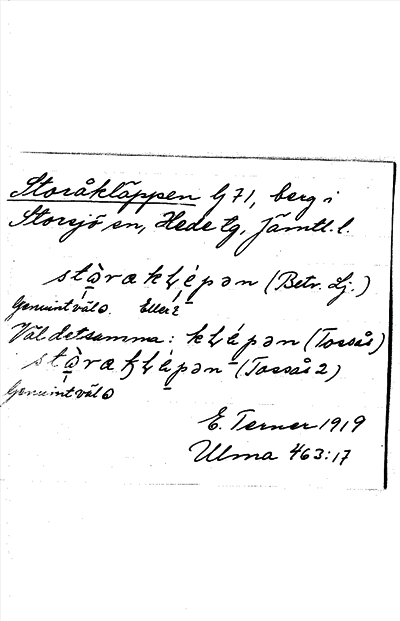 Storåkläppen G 71, berg i
Storsjö sn, Hede tg, Jämtl. l.
stɷ̀raklépən (Betr. Lj.)
Genuint väl ɷ. Eller
Väl detsamma: klépən (Tossås)
stɷ̀raklépən (Tossås 2)
Genuint väl ɷ
E. Terner 1919
Ulma 463:17